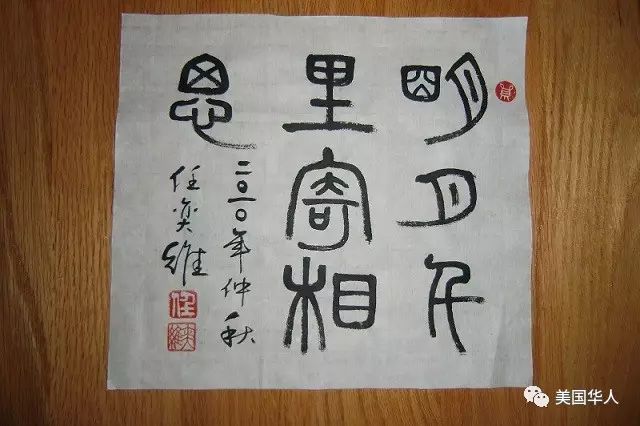 明月千
里寄相
思
二〇一〇年仲秋
任奕維
美国华人